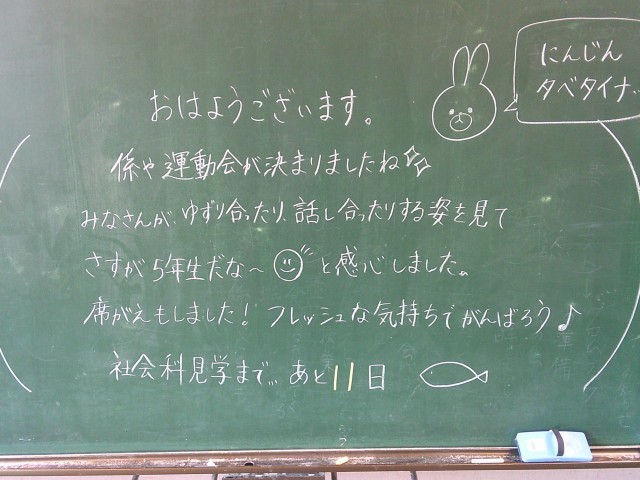 おはようございます。
にんじん
タベタイナ..
係や運動会が決まりましたね
みなさんが、ゆずり合ったり、話し合ったりする姿を見て
さすが5年生だな〜 と感心しました。
席がえもしました! フレッシュな気持ちでがんばろう♪
社会科見学まで... あと11日